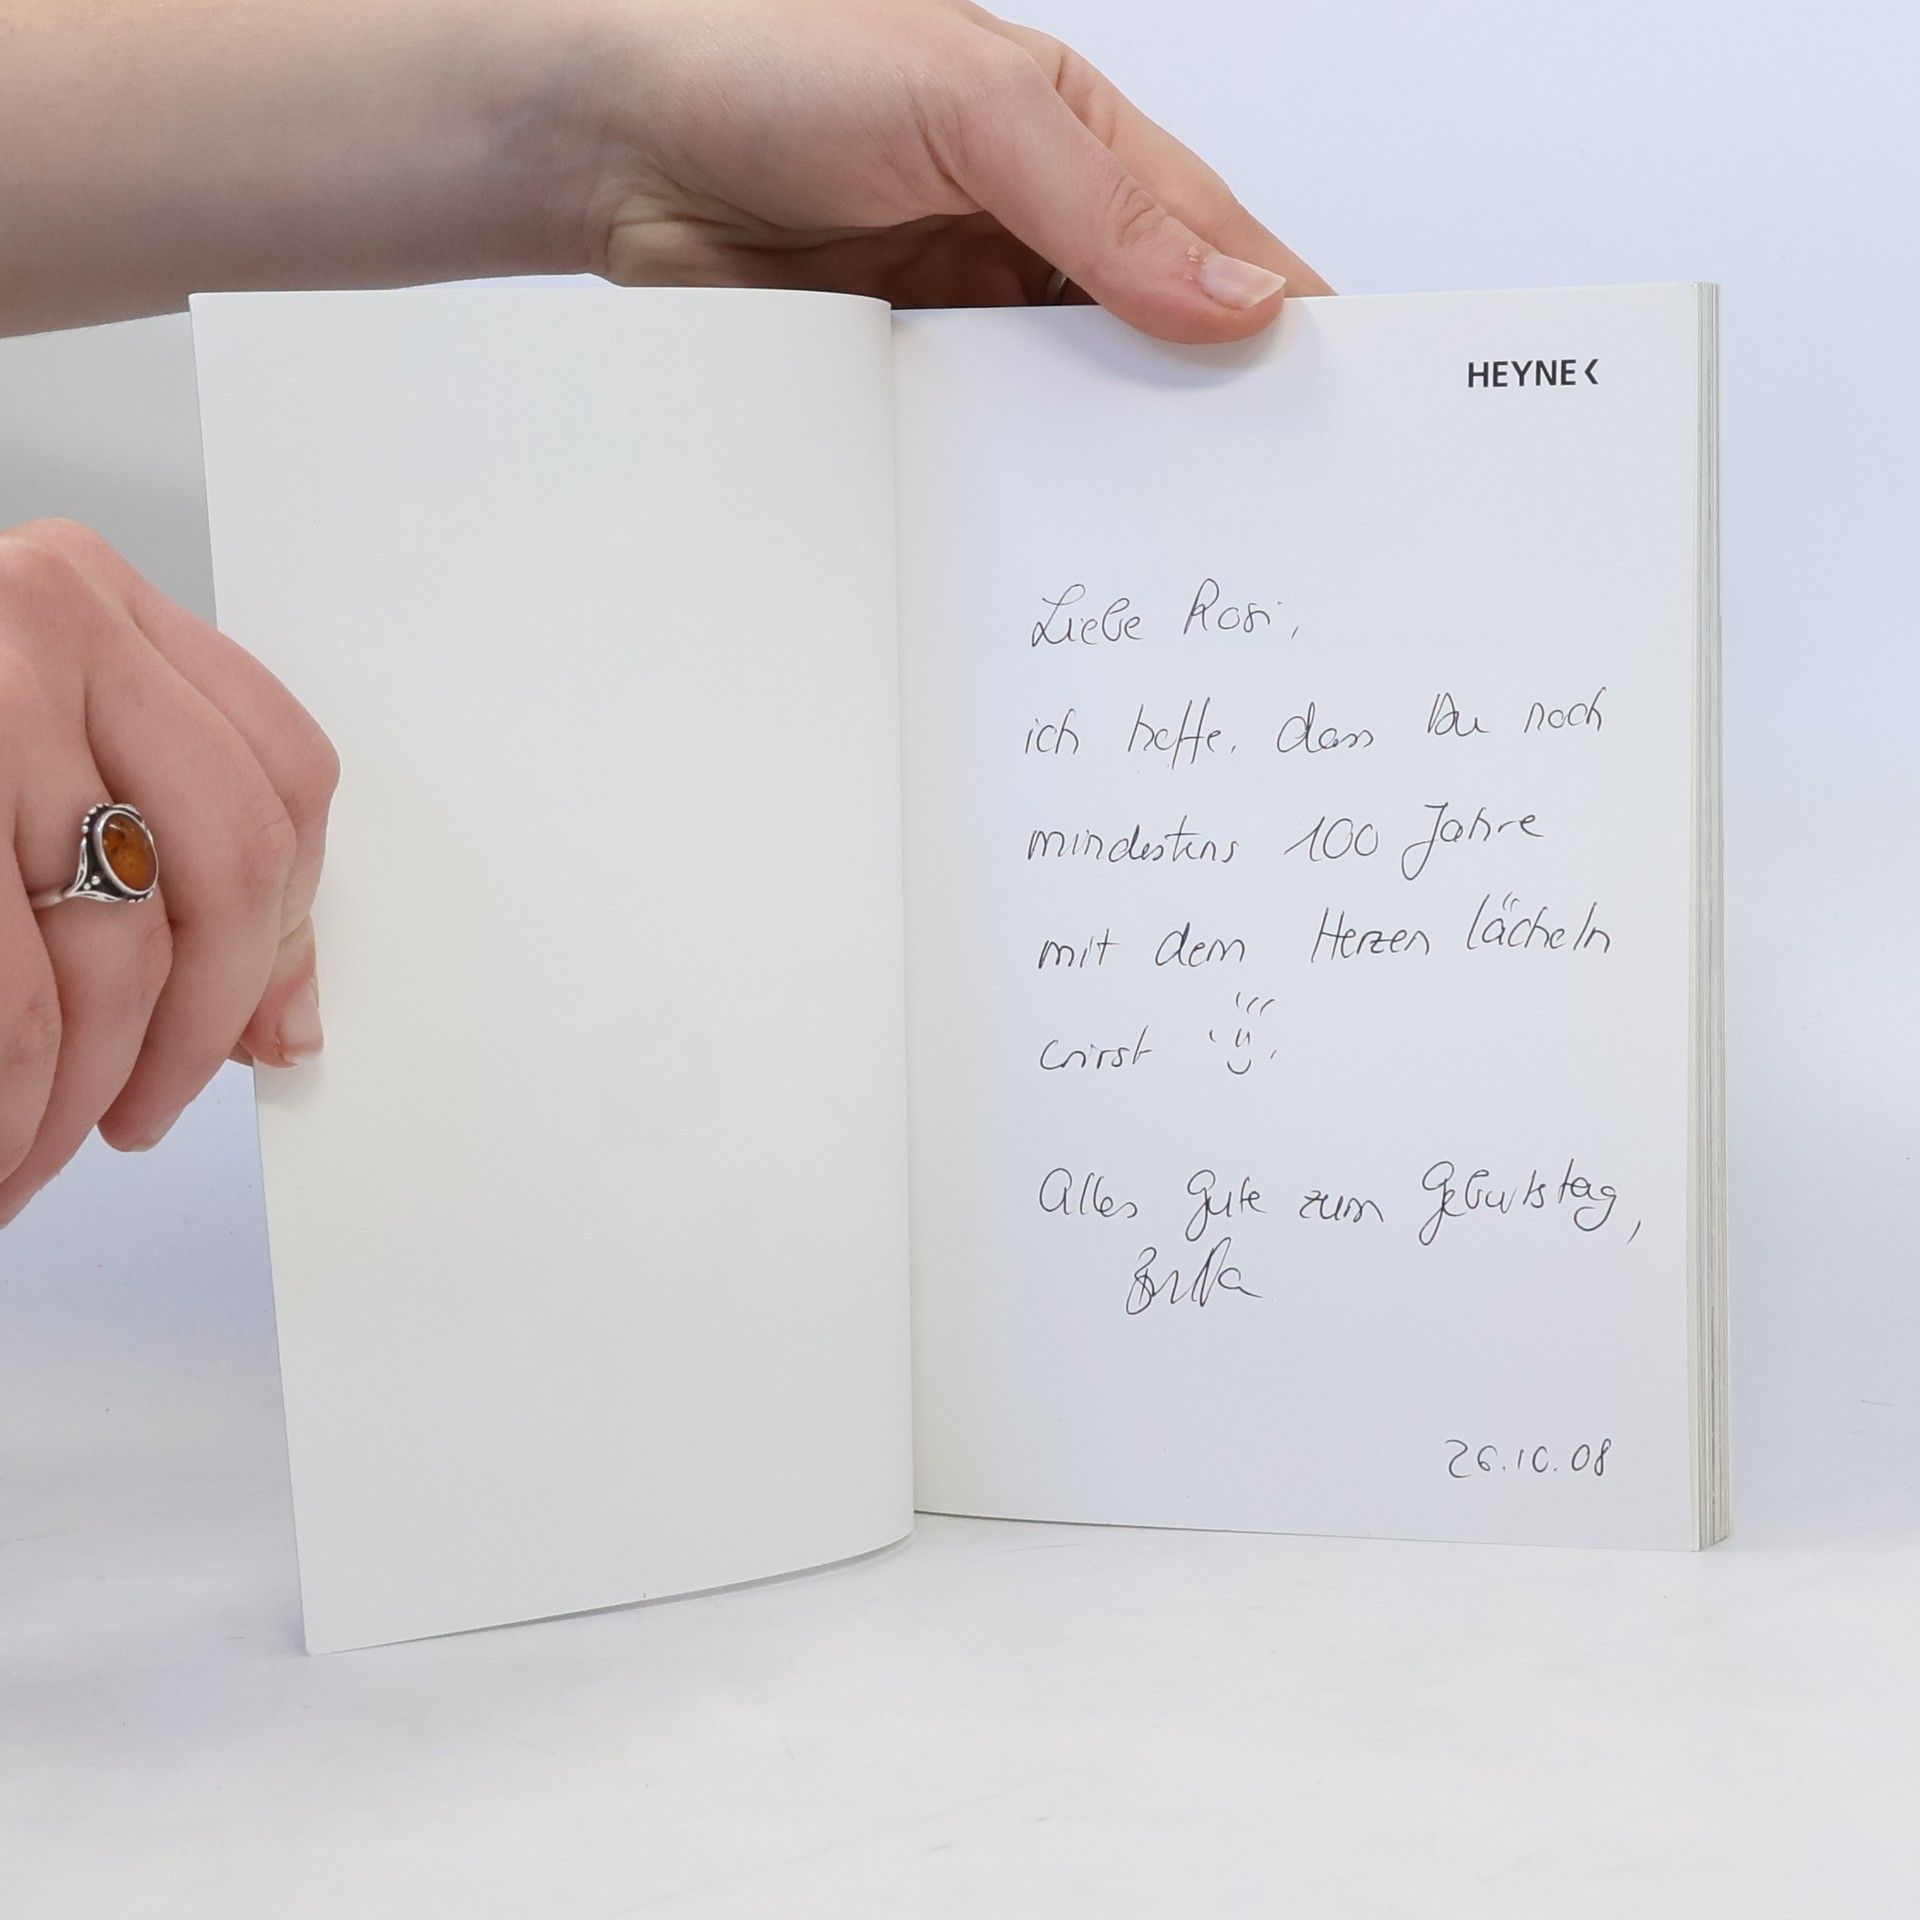 HEYNE
Liebe Rosi,
ich hoffe, dass Du noch
mindestens 100 Jahre
mit dem Herzen lächeln
wirst
Alles Gute zum Geburtstag,
26.10.08